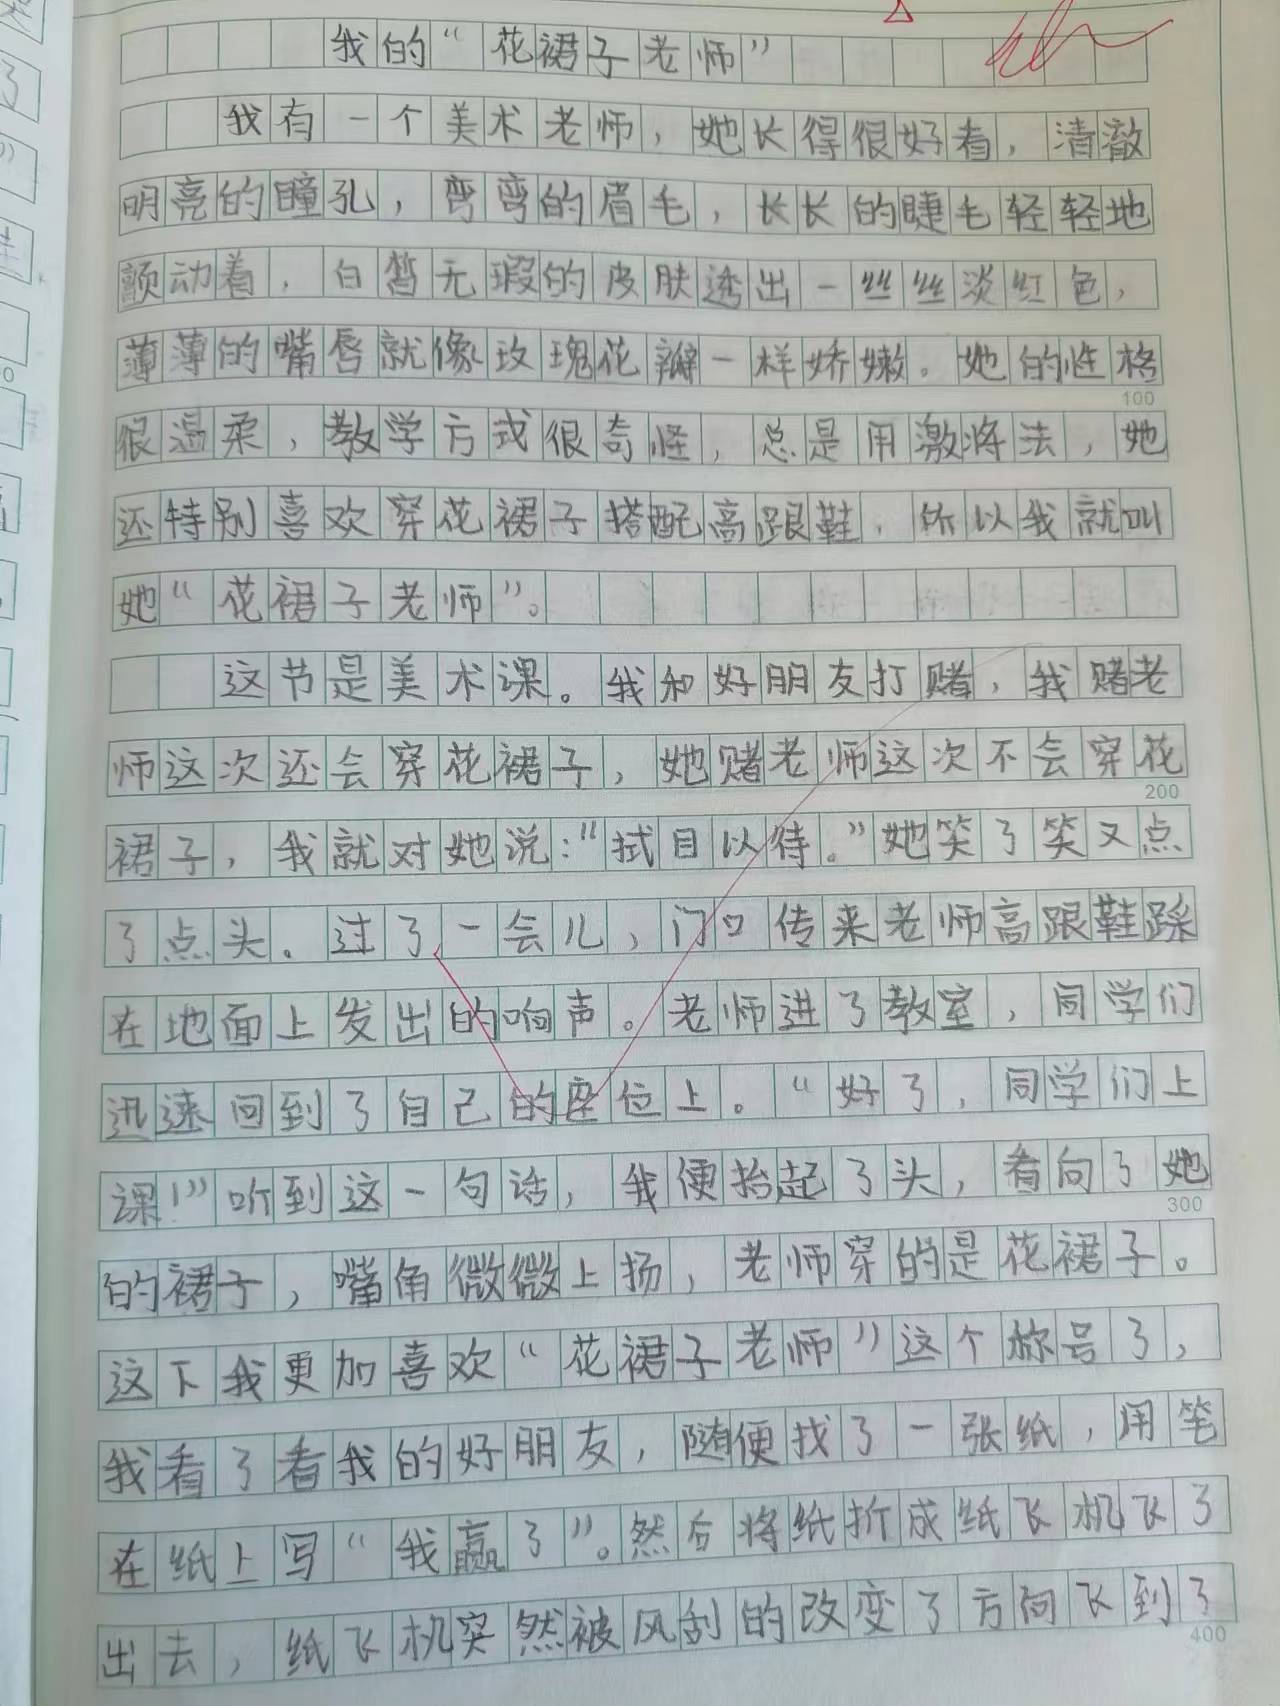 我的“花裙子老师”
我有一个美术老师，她长得很好看，清澈
明亮的瞳孔，弯弯的眉毛，长长的睫毛轻轻地
颤动着，白皙无瑕的皮肤透出一丝丝淡红色，
薄薄的嘴唇就像玫瑰花瓣一样娇嫩。她的性格
100
很温柔，教学方式很奇怪，总是用激将法，她
还特别喜欢穿花裙子搭配高跟鞋，所以我就叫
她“花裙子老师”。
这节是美术课。我和好朋友打赌，我赌老
师这次还会穿花裙子，她赌老师这次不会穿花
200
裙子，我就对她说：“拭目以待。”她笑了笑又点
了点头。过了一会儿，门口传来老师高跟鞋踩
在地面上发出的响声。老师进了教室，同学们
迅速回到了自己的座位上。“好了，同学们上
课！”听到这一句话，我便抬起了头，看向了她
300
的裙子，嘴角微微上扬，老师穿的是花裙子。
这下我更加喜欢“花裙子老师”这个称号了，
我看了看我的好朋友，随便找了一张纸，用笔
在纸上写“我赢了”。然后将纸折成纸飞机飞了
出去，纸飞机突然被风刮的改变了方向飞到了
400